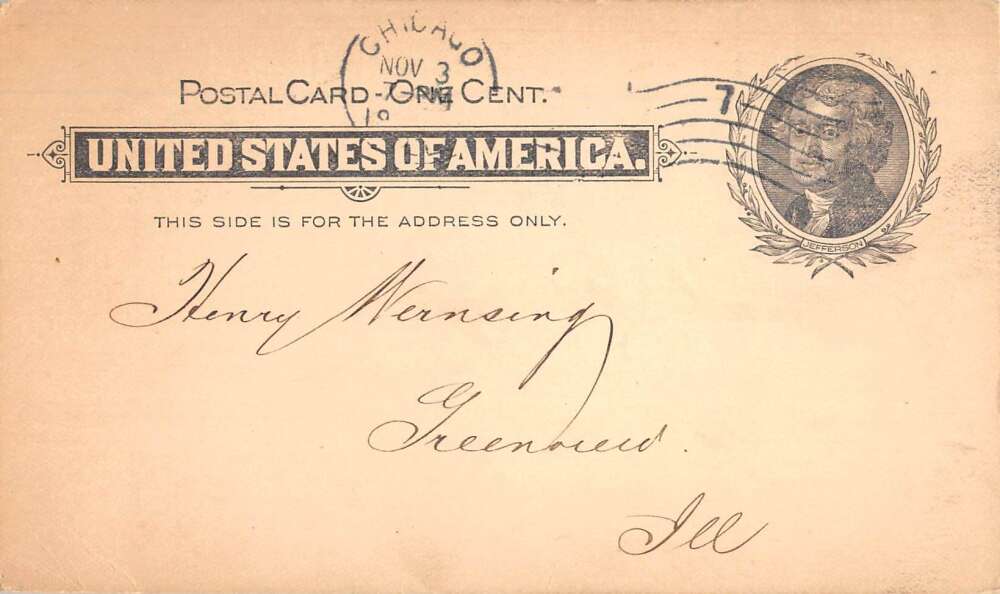 CHICAGO
NOV 3
7
POSTAL CARD - ONE CENT.
7
UNITED STATES OF AMERICA.
THIS SIDE IS FOR THE ADDRESS ONLY.
JEFFERSON
Henry Wernsing
Greenview.
Ill